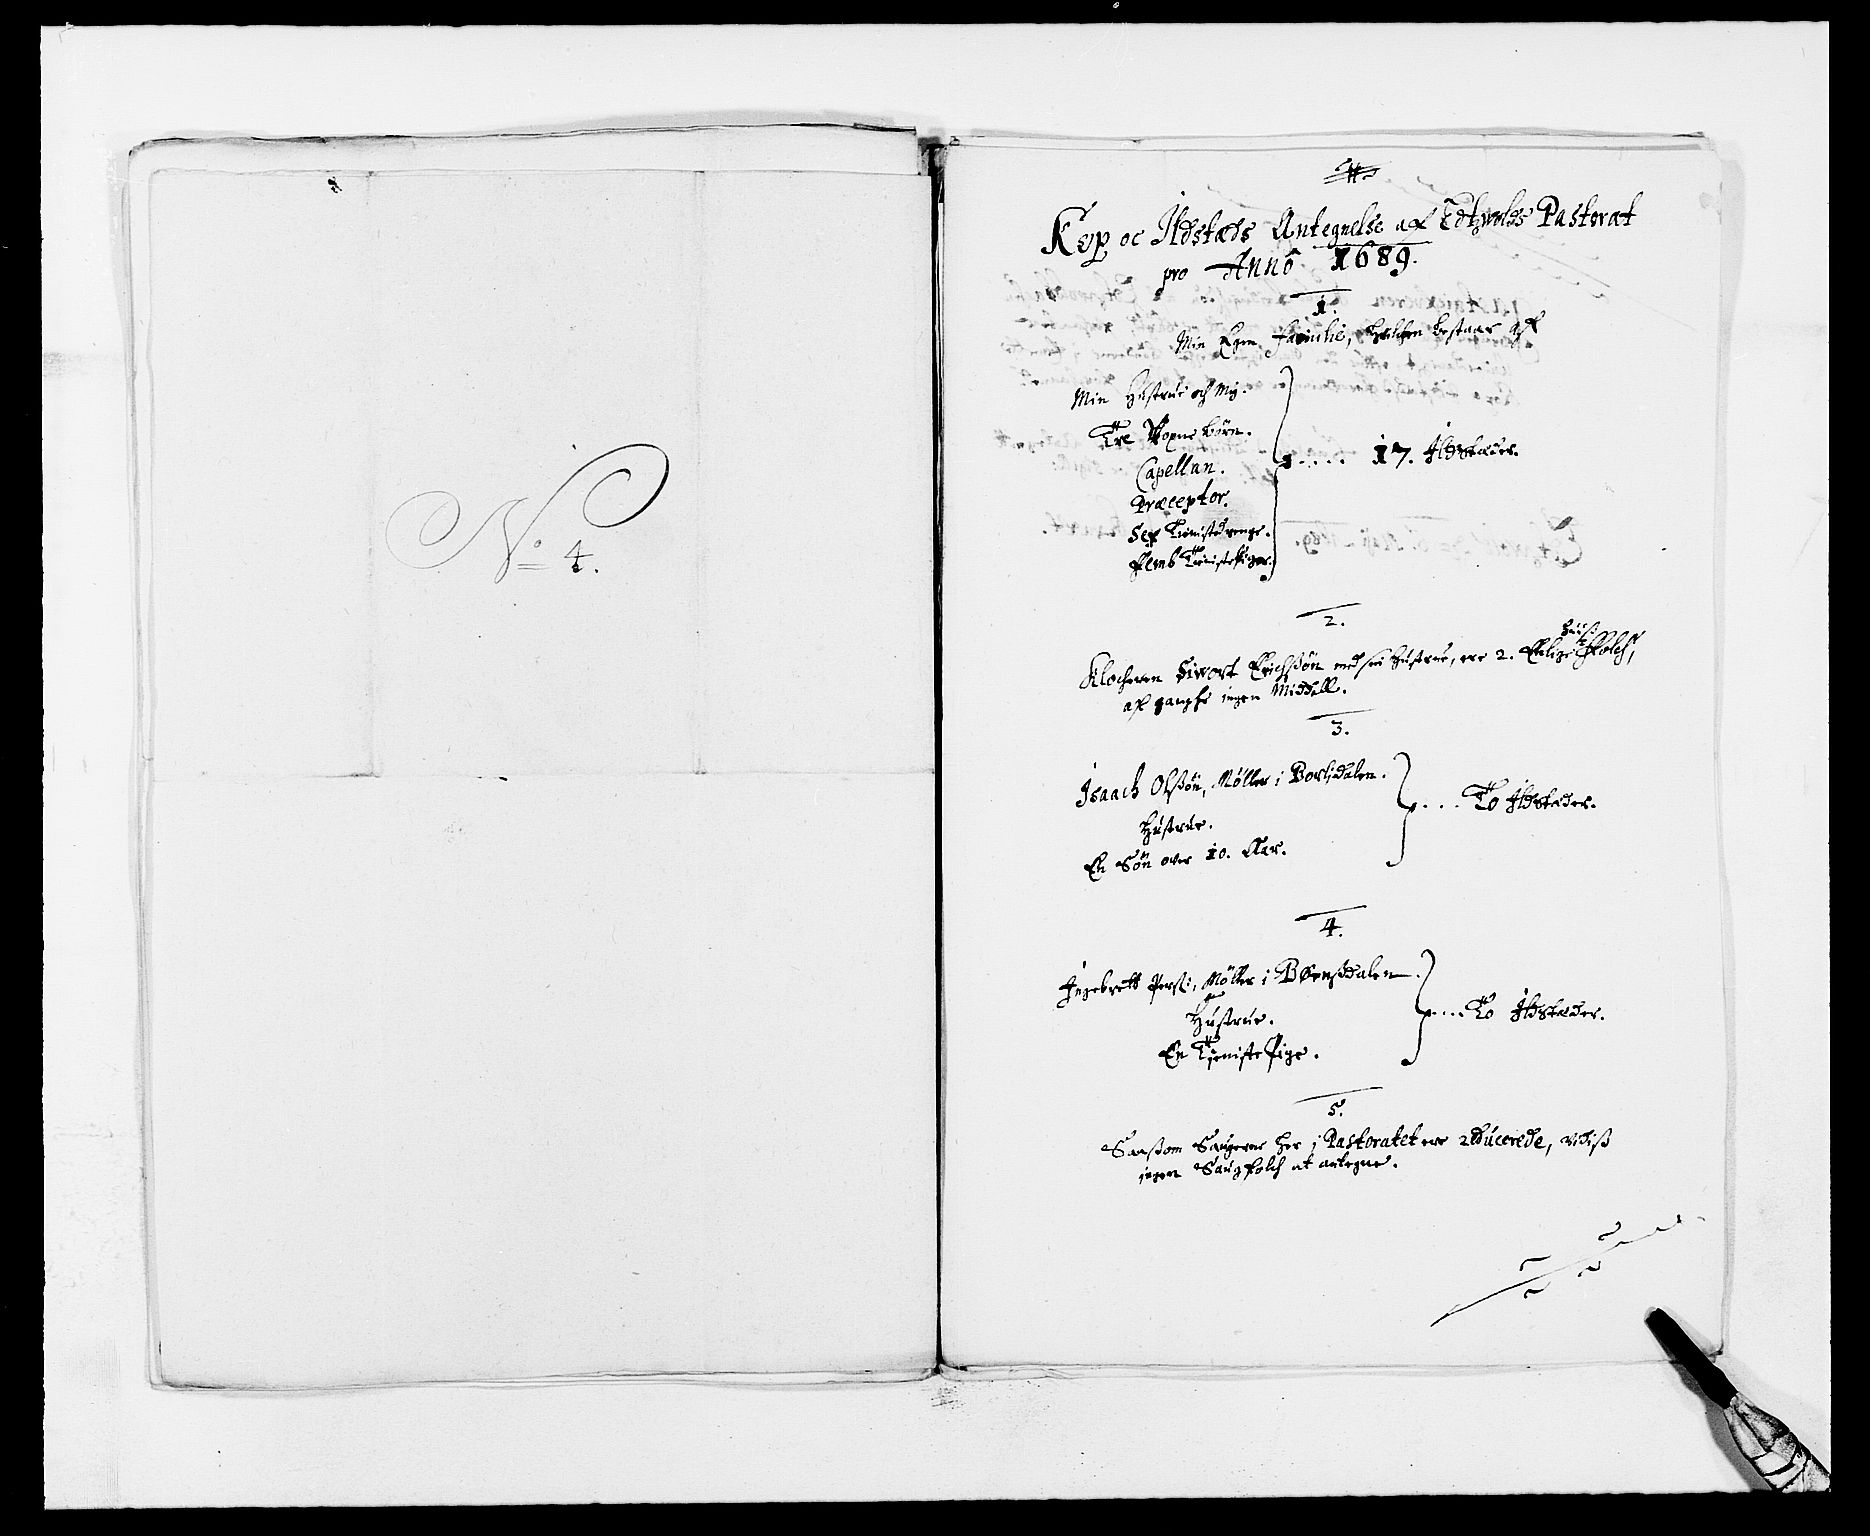 No 4.
Kop oc Ildstæds Antegnelse aff Edtzwolds Pastorat
pro Anno 1689.
1.
Min Egen familie, hvilchen bestaar aff
Min Hustrue och mig.
Tre Voxne børn.
Capellan.
Præceptor.
Sex Tienistedrenge.
Femb Tienistepiger.
.... 17. Ildstæder.
2.
Klocheren Siwort Erichsøn med sin Hustrue, ere 2. Huus:
Ærlige Folch,
aff gandske ingen Middell.
3.
Isaach Olsøn, Møller i Borlidalen.
Hustrue.
En Søn over 10. Aar.
.... To Ildstæder.
4.
Ingebrett Pers:, Møller i Bønsdalen.
Hustrue.
En Tjeniste Pige.
.... To Ildstæder.
5.
Saasom Saugerne her i Pastoratet ere reducerede, vidis
ingen Saugfolch at antegne.